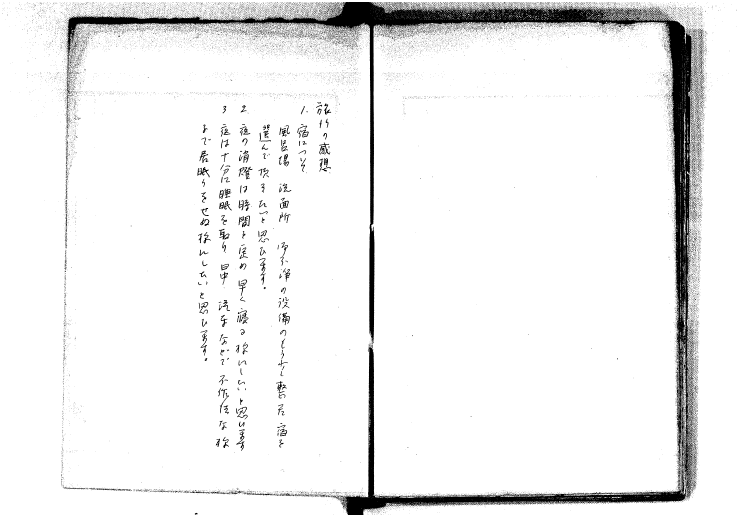 旅行の感想
1. 宿について
風呂場 洗面所 御不浄の設備のもう少し整った宿を
選んで頂きたいと思ひます。
2. 夜の消燈は時間を定め 早く寝る様にしたいと思ひます
3 夜は十分に睡眠を取り 日中 汽車などで不作法な様
まで居眠りをせぬ様にしたいと思ひます。